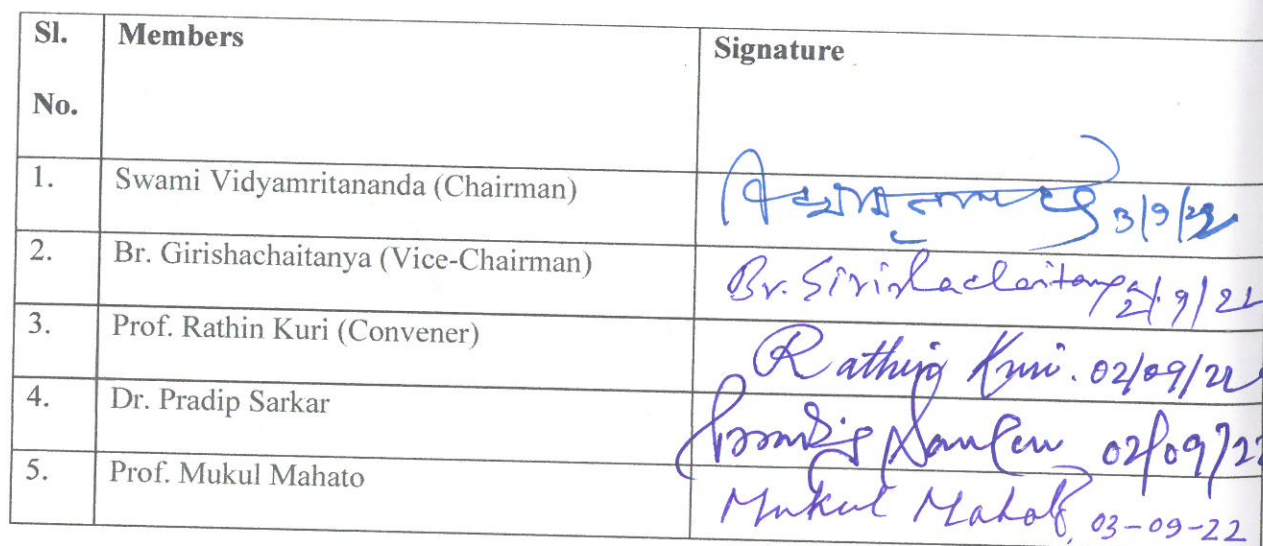 Sl. No. Members Signature
1. Swami Vidyamritananda (Chairman) 3/9/22
2. Br. Girishachaitanya (Vice-Chairman) Br. Girishachaitanya 2/9/22
3. Prof. Rathin Kuri (Convener) Rathin Kuri. 02/09/22
4. Dr. Pradip Sarkar Pradip Sarkar 02/09/22
5. Prof. Mukul Mahato Mukul Mahato 03-09-22